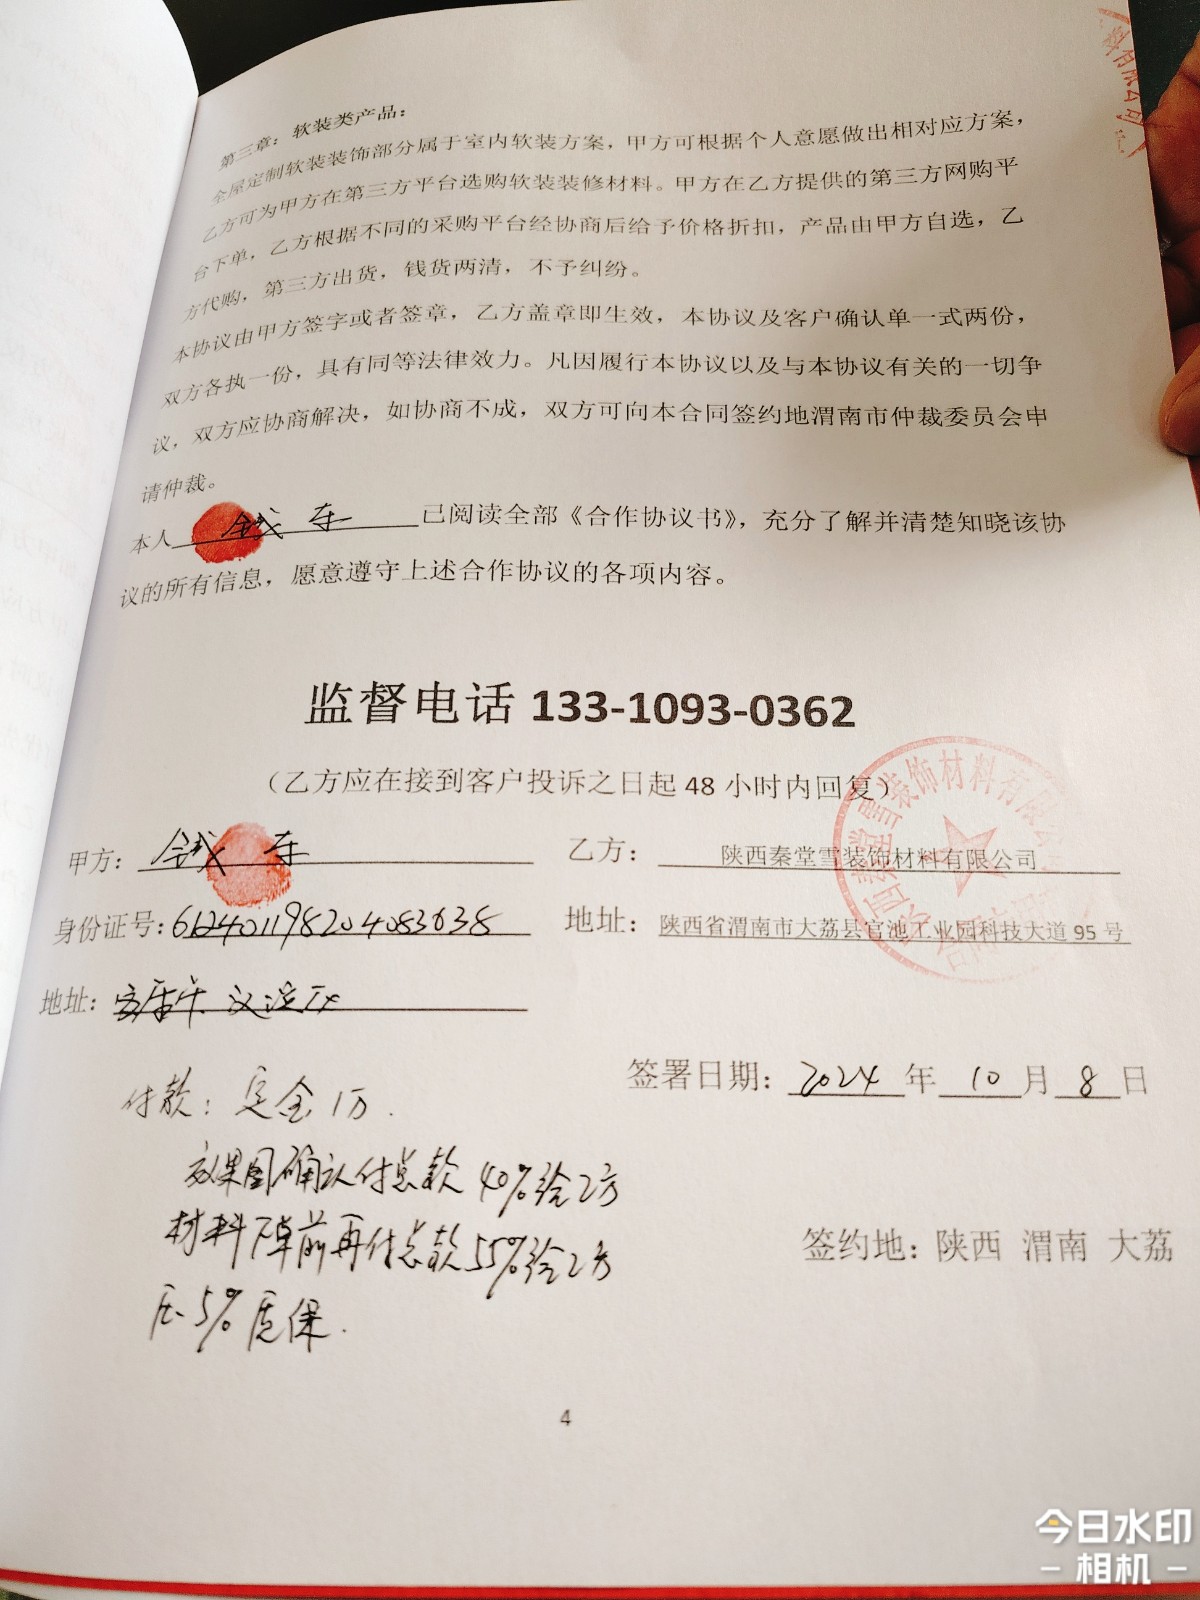 第三章：软装类产品：
全屋定制软装装饰部分属于室内软装方案，甲方可根据个人意愿做出相对应方案，
乙方可为甲方在第三方平台选购软装装修材料。甲方在乙方提供的第三方网购平
台下单，乙方根据不同的采购平台经协商后给予价格折扣，产品由甲方自选，乙
方代购，第三方出货，钱货两清，不予纠纷。
本协议由甲方签字或者签章，乙方盖章即生效，本协议及客户确认单一式两份，
双方各执一份，具有同等法律效力。凡因履行本协议以及与本协议有关的一切争
议，双方应协商解决，如协商不成，双方可向本合同签约地渭南市仲裁委员会申
请仲裁。
本人 已阅读全部《合作协议书》，充分了解并清楚知晓该协
议的所有信息，愿意遵守上述合作协议的各项内容。
监督电话 133-1093-0362
（乙方应在接到客户投诉之日起 48 小时内回复）
甲方：
乙方： 陕西秦堂雪装饰材料有限公司
身份证号：
地址： 陕西省渭南市大荔县官池工业园科技大道 95 号
地址：
签署日期：2024 年 10 月 8 日
付款：定金1万.
效果图确认付总款 40%给乙方
材料下单前再付总款55%给乙方
压5%质保.
签约地：陕西 渭南 大荔
4
今日水印
相机
料有限公司